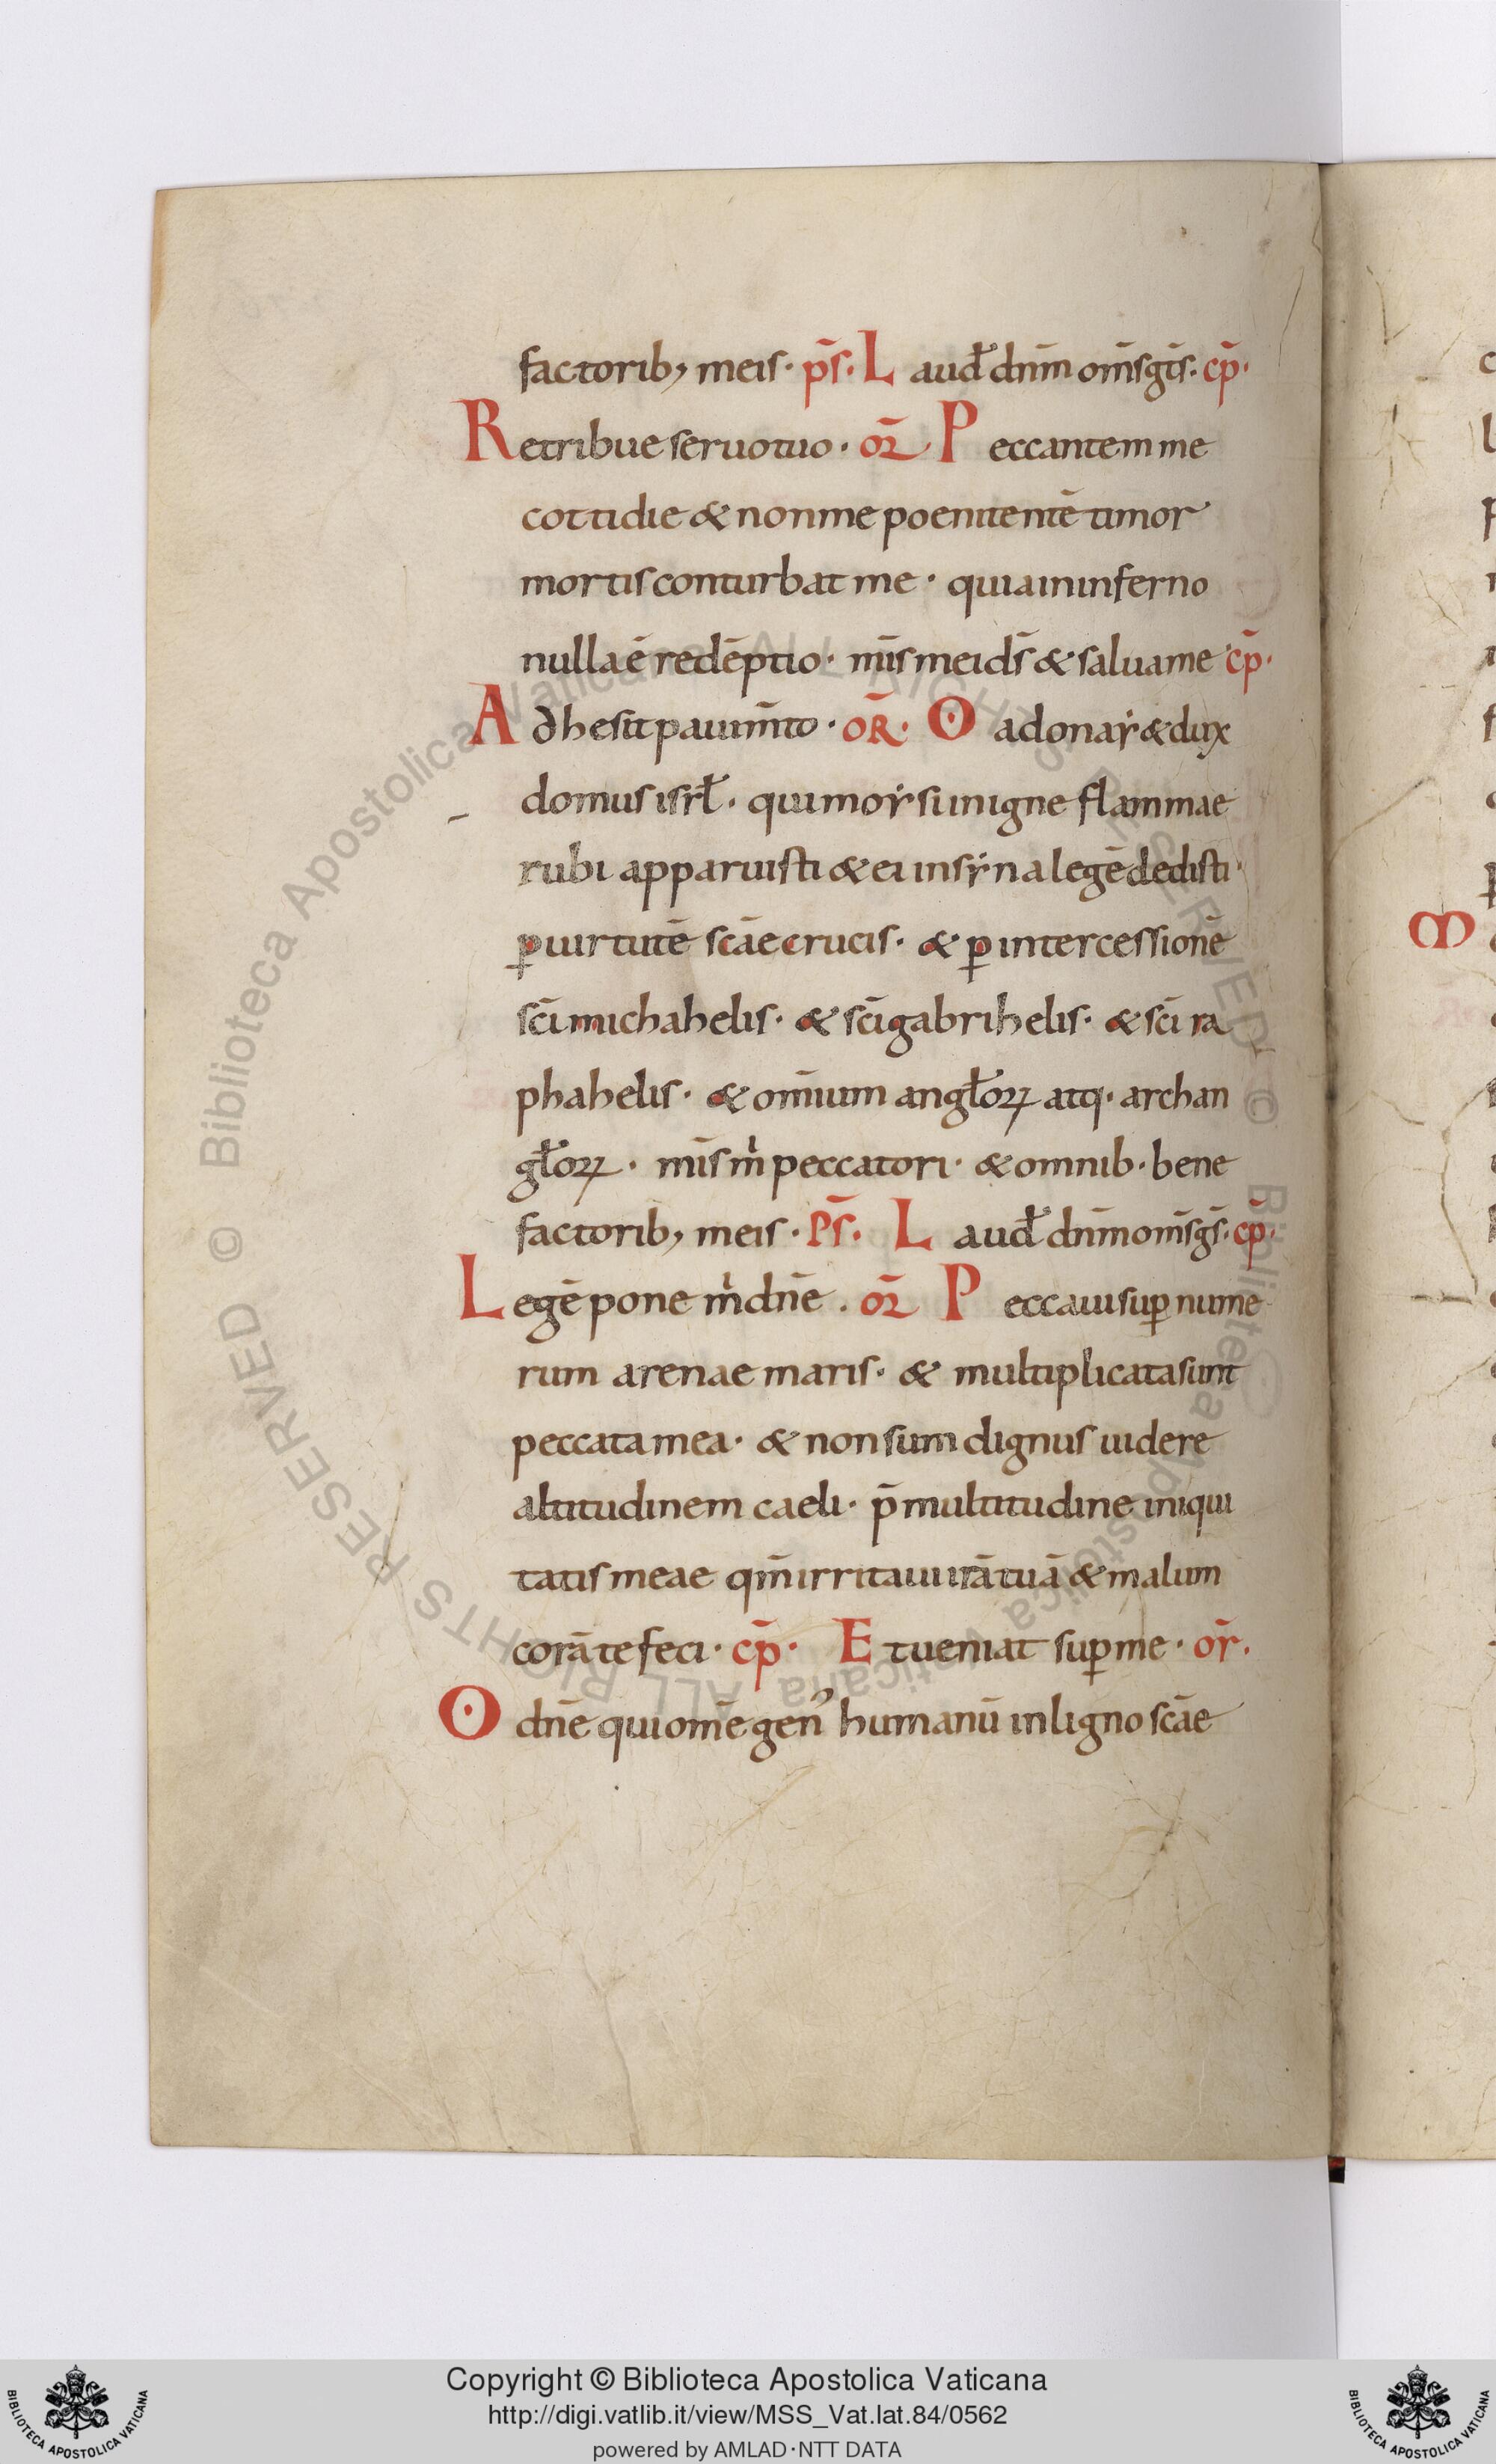 factorib; meis · p̄s · L aud̄ dn̄m om̄s gt̄s · cp̄ ·
Retribue seruo tuo · or̄ P eccantem me
cottidie & non me poenitentē timor
mortis conturbat me · quia in inferno
nulla ē redēptio · mīs mei ds̄ & salua me cp̄ ·
Adhesit pauim̄to · OR̄ · O adonaẏ & dux
domus isrl̄ · qui moẏsi in igne flammae
rubi apparuisti & ei in sẏna legē dedisti ·
ꝑ uirtutē sc̄ae crucis · & ꝑ intercessionē
sc̄i michahelis · & sc̄i gabrihelis · & sc̄i ra
phahelis · & om̄ium angl̄oꝝ atq · archan
gl̄oꝝ · mīs m̍ peccatori · & omnib · bene
factorib; meis · P̄s · L aud̄ dn̄m om̄s gs̄ · cp̄ ·
Legē pone m̍ dn̄e · or̄ P eccaui suꝑ nume
rum arenae maris · & multiplicata sunt
peccata mea · & non sum dignus uidere
altitudinem caeli · p̄ multitudine iniqui
tatis meae qm̄ irritaui irā tuā & malum
corā te feci · cp̄ · Et ueniat suꝑ me · or̄ ·
O dn̄e qui om̄e gen᾿ humanū in ligno sc̄ae
Biblioteca Apostolica Vaticana ALL RIGHTS RESERVED ©
Biblioteca Apostolica Vaticana ALL RIGHTS RESERVED ©
Copyright © Biblioteca Apostolica Vaticana
http://digi.vatlib.it/view/MSS_Vat.lat.84/0562
powered by AMLAD·NTT DATA
BIBLIOTECA APOSTOLICA VATICANA
BIBLIOTECA APOSTOLICA VATICANA